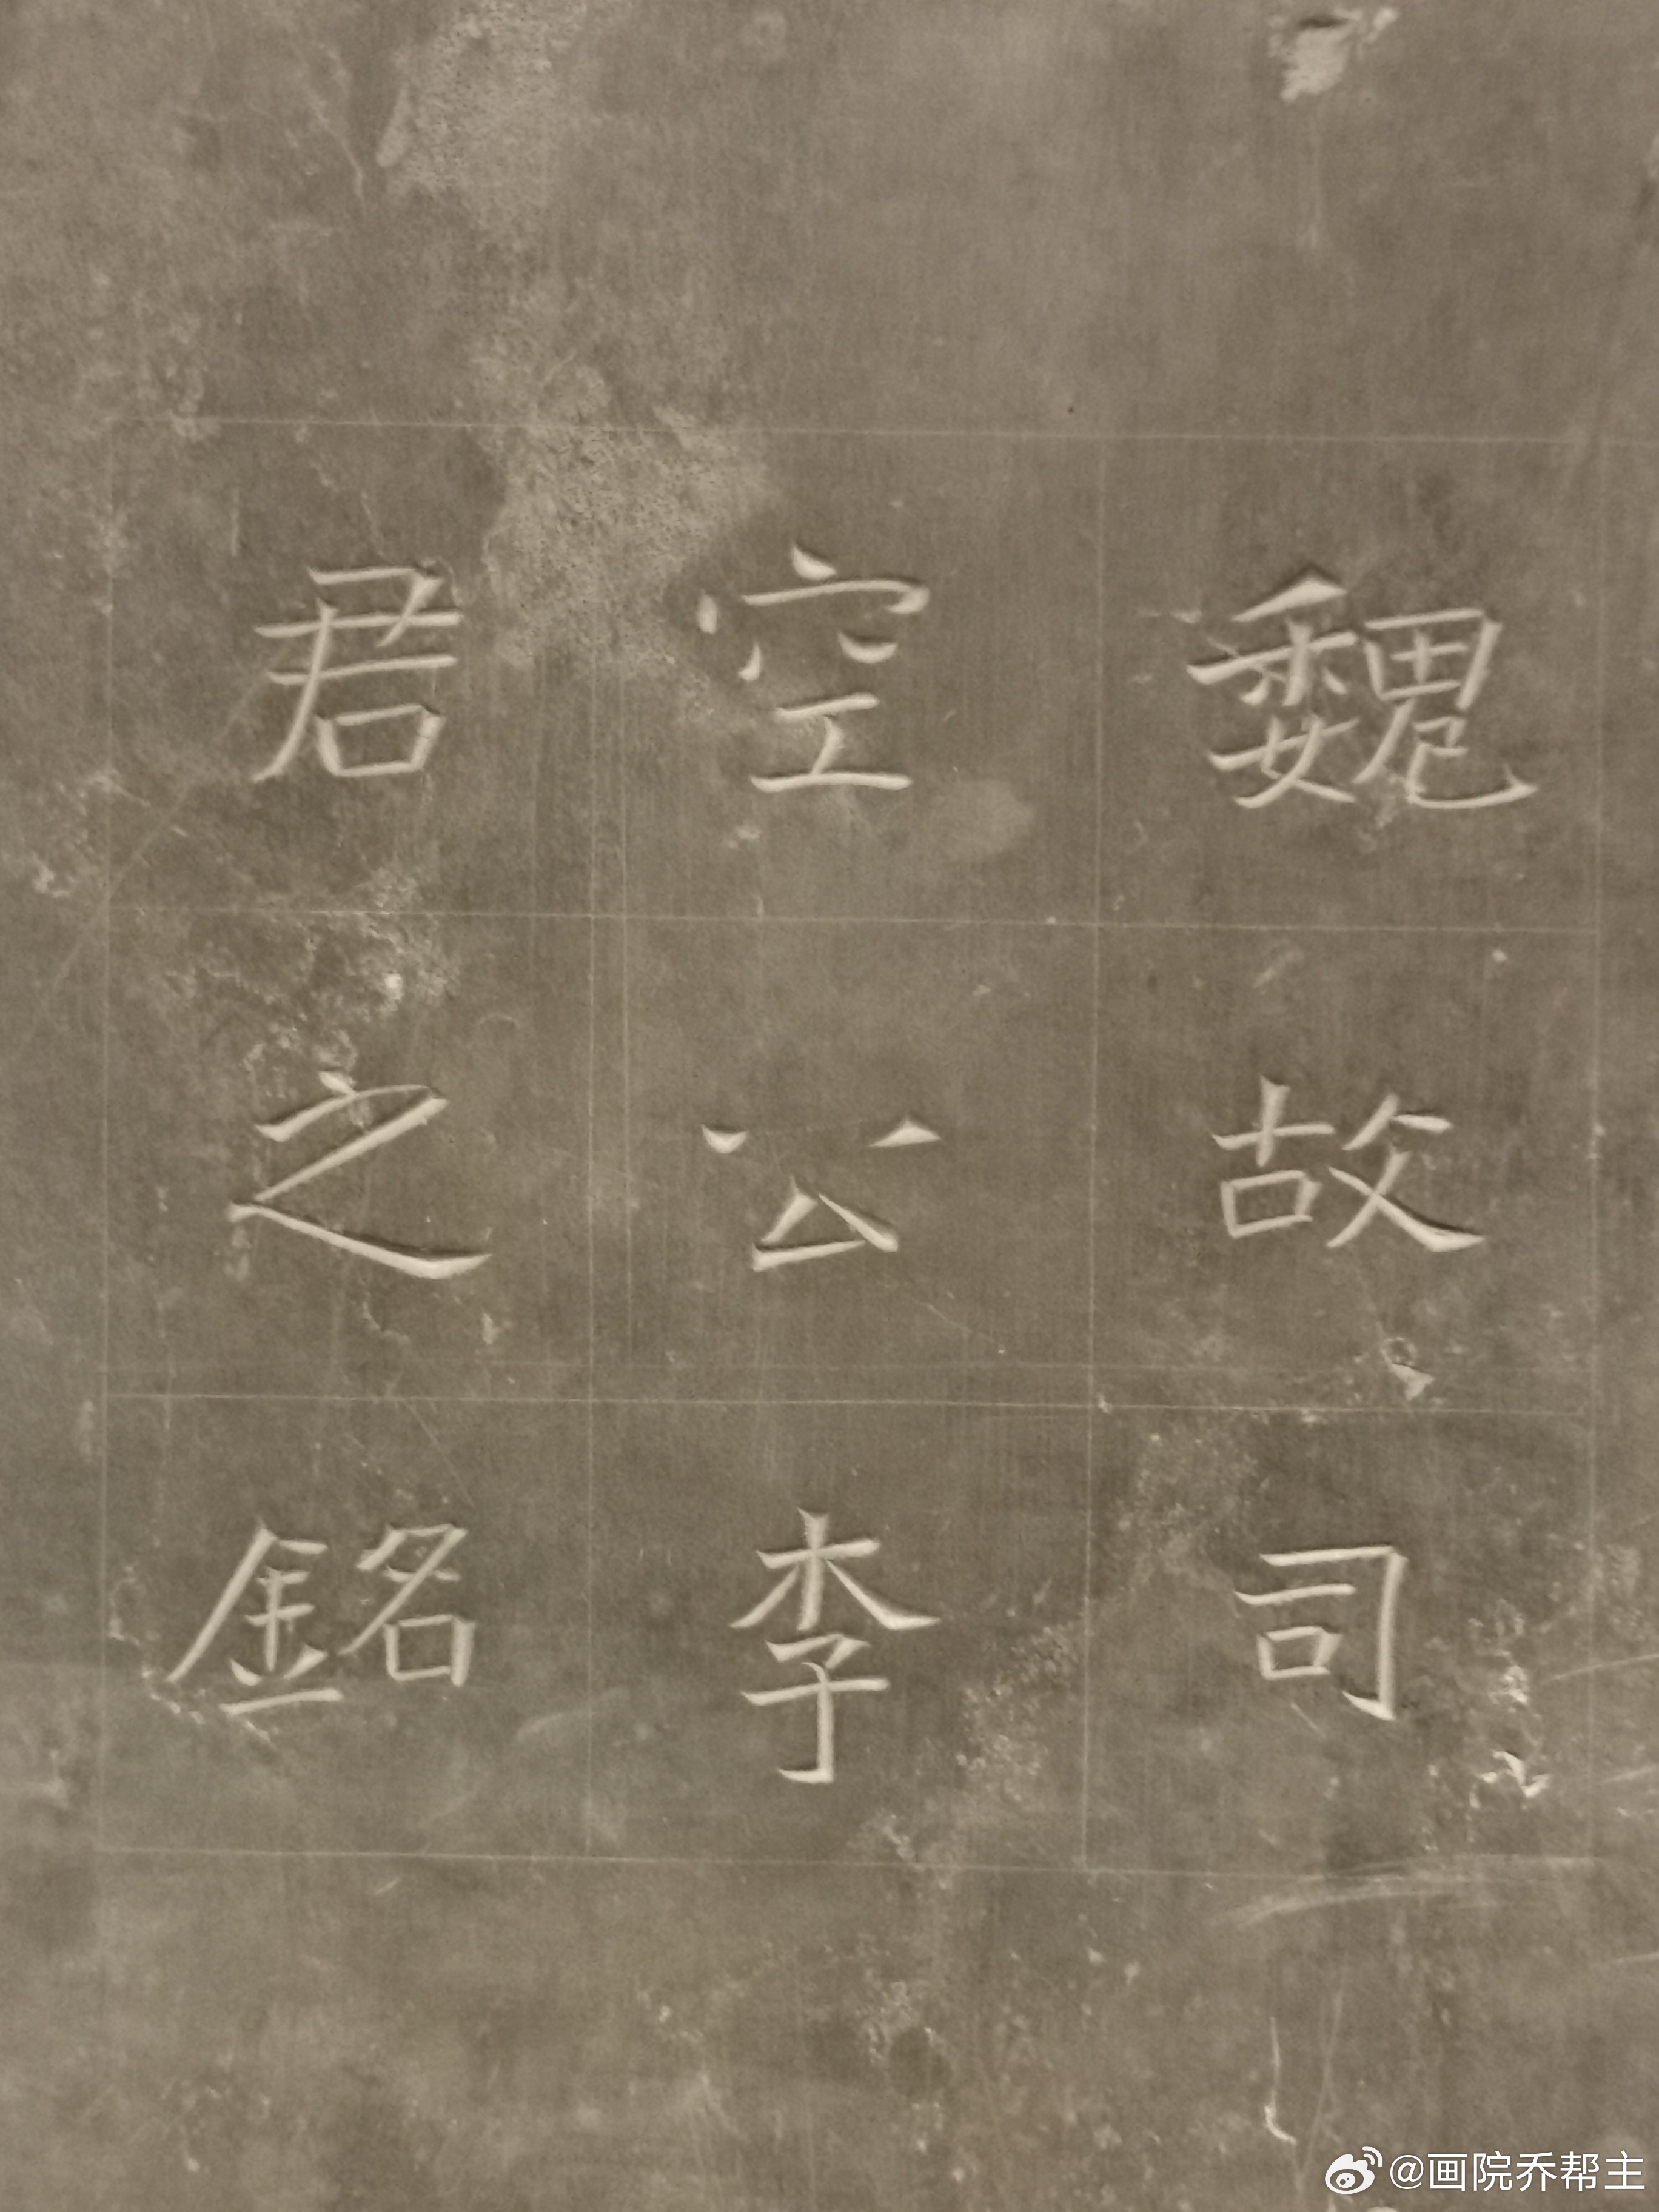 魏故司
空公李
君之銘
@画院乔帮主